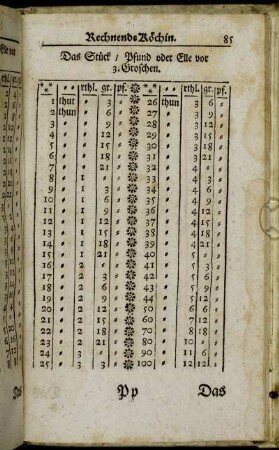 Rechnende Köchin. 85
Das Stück / Pfund oder Elle vor
3. Groschen.
rthl. gr. pf. rthl. gr. pf.
1 thut " 3 " 26 thun 3 6 "
2 thun " 6 " 27 " 3 9 "
3 " " 9 " 28 " 3 12 "
4 " " 12 " 29 " 3 15 "
5 " " 15 " 30 " 3 18 "
6 " " 18 " 31 " 3 21 "
7 " " 21 " 32 " 4 " "
8 " 1 " " 33 " 4 3 "
9 " 1 3 " 34 " 4 6 "
10 " 1 6 " 35 " 4 9 "
11 " 1 9 " 36 " 4 12 "
12 " 1 12 " 37 " 4 15 "
13 " 1 15 " 38 " 4 18 "
14 " 1 18 " 39 " 4 21 "
15 " 1 21 " 40 " 5 " "
16 " 2 " " 41 " 5 3 "
17 " 2 3 " 42 " 5 6 "
18 " 2 6 " 43 " 5 9 "
19 " 2 9 " 44 " 5 12 "
20 " 2 12 " 50 " 6 6 "
21 " 2 15 " 60 " 7 12 "
22 " 2 18 " 70 " 8 18 "
23 " 2 21 " 80 " 10 " "
24 " 3 " " 90 " 11 6 "
25 " 3 3 " 100 " 12 12 "
Pp Das